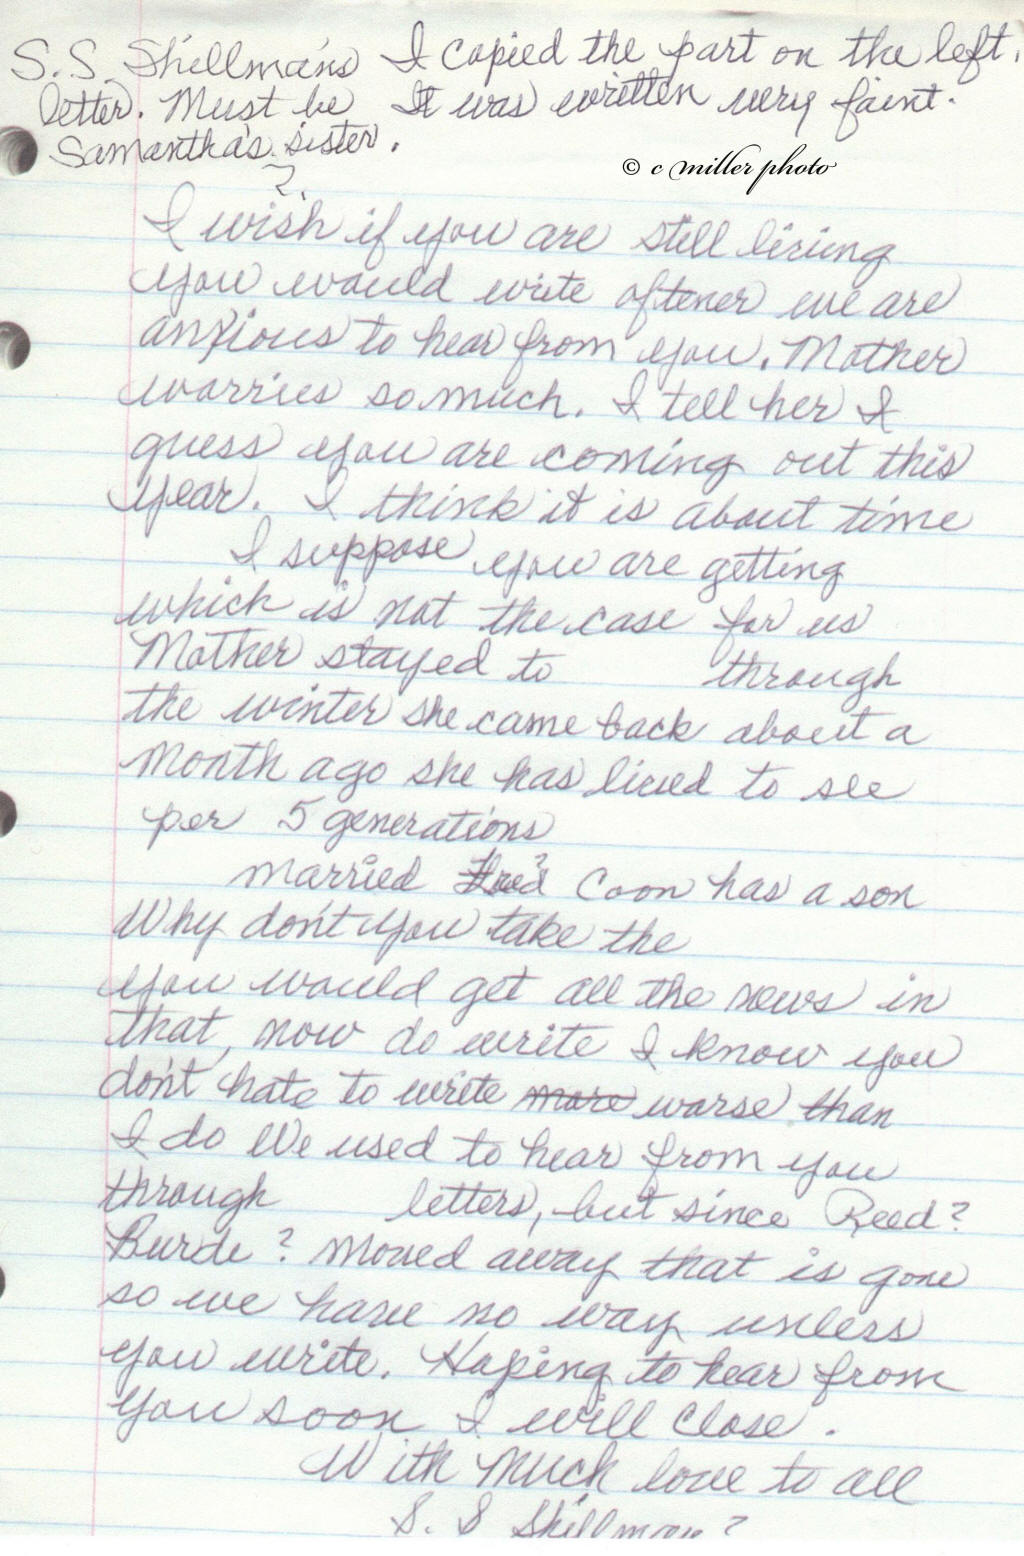 S.S. Skillman's I copied the part on the left.
letter. Must be It was written very faint.
Samantha's sister.
?
© c miller photo
I wish if you are still living
you would write oftener we are
anxious to hear from you. Mother
worries so much. I tell her I
guess you are coming out this
year. I think it is about time
I suppose you are getting
which is not the case for us
Mother stayed to through
the winter she came back about a
month ago she has lived to see
per 5 generations
married Fred? Coon has a son
Why don't you take the
you would get all the news in
that, now do write I know you
don't hate to write more worse than
I do We used to hear from you
through letters, but since Reed?
Burde? moved away that is gone
so we have no way unless
you write. Hoping to hear from
you soon I will close.
With much love to all
S. S Skillman?